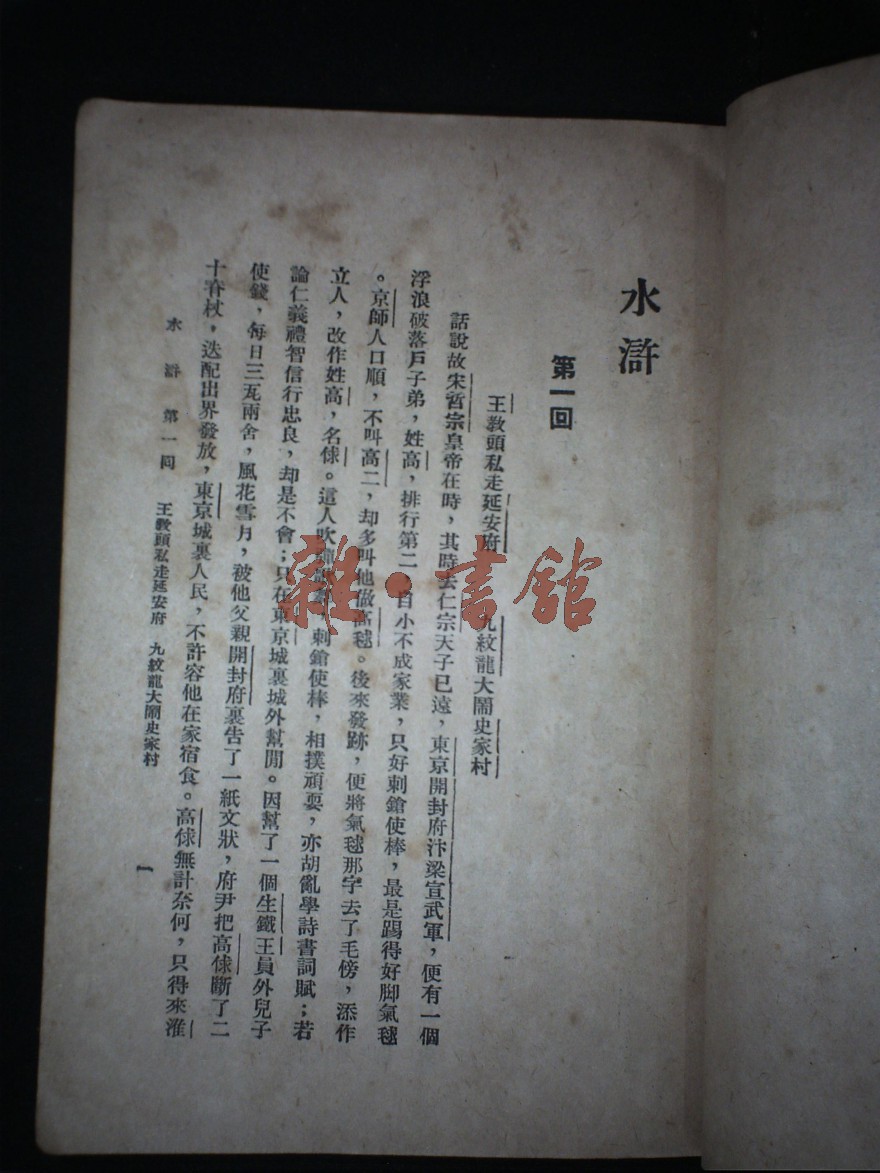 水滸
第一回
王教頭私走延安府　九紋龍大鬧史家村
話說故宋哲宗皇帝在時，其時去仁宗天子已遠，東京開封府汴梁宣武軍，便有一個
浮浪破落戶子弟，姓高，排行第二，自小不成家業，只好刺鎗使棒，最是踢得好脚氣毬
。京師人口順，不叫高二，却多叫他做高毬。後來發跡，便將氣毬那字去了毛傍，添作
立人，改作姓高，名俅。這人吹彈，刺鎗使棒，相撲頑耍，亦胡亂學詩書詞賦；若
論仁義禮智信行忠良，却是不會；只在東京城裏城外幫閒。因幫了一個生鐵王員外兒子
使錢，每日三瓦兩舍，風花雪月，被他父親開封府裏告了一紙文狀，府尹把高俅斷了二
十脊杖，迭配出界發放，東京城裏人民，不許容他在家宿食。高俅無計奈何，只得來淮
水滸　第一回　王教頭私走延安府　九紋龍大鬧史家村　一
雜·書館